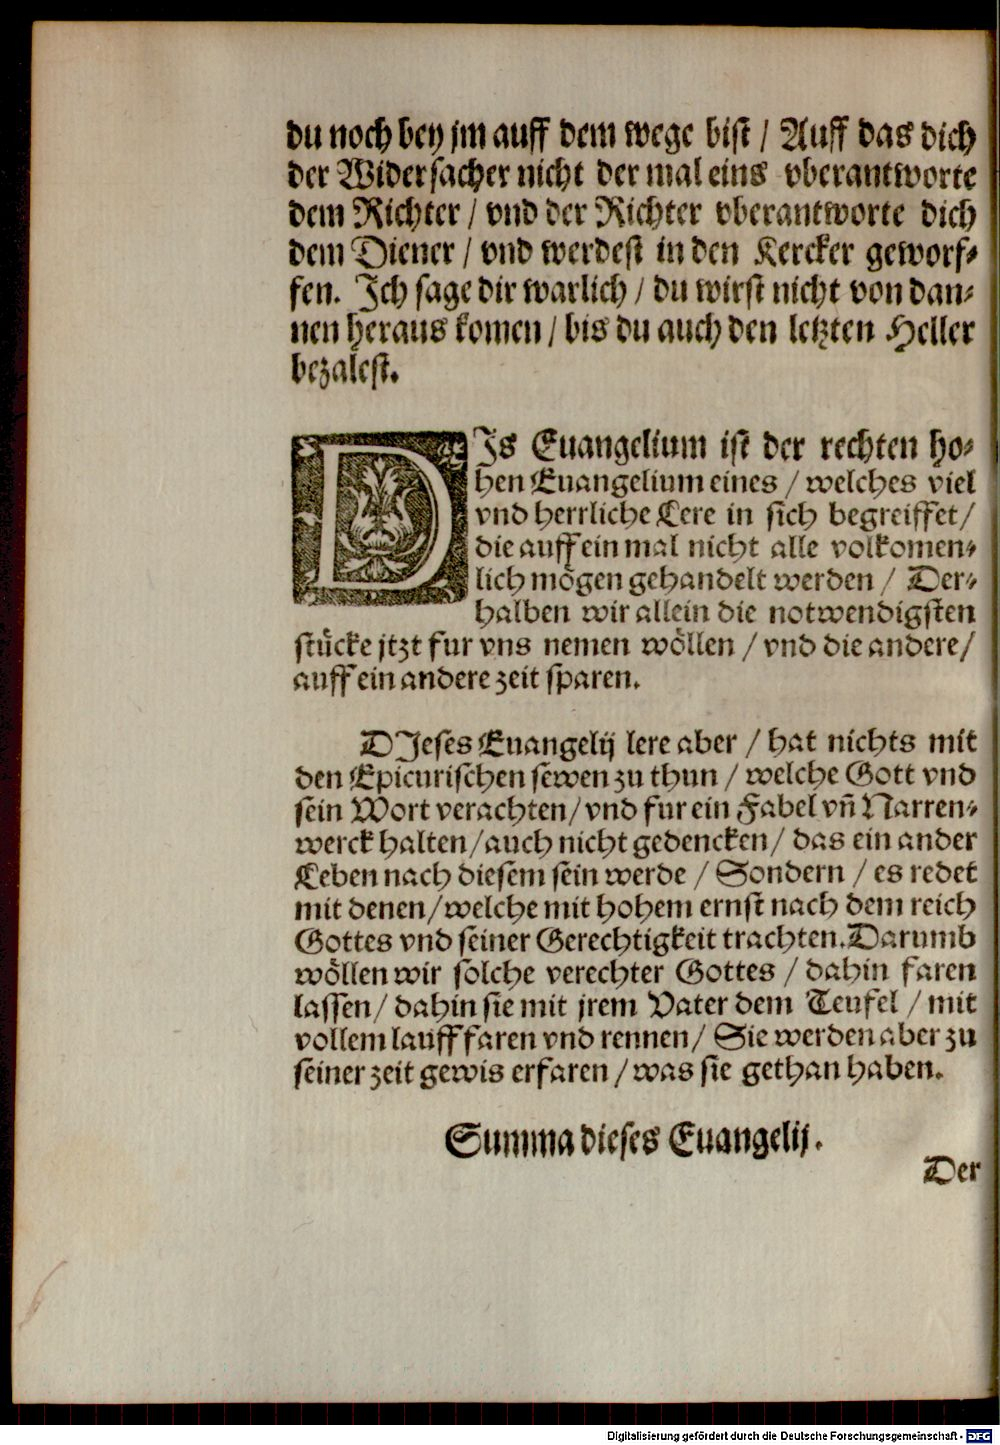 du noch bey jm auff dem wege bist / Auff das dich
der Widersacher nicht der mal eins vberantworte
dem Richter / vnd der Richter vberantworte dich
dem Diener / vnd werdest in den Kercker geworf⸗
fen. Ich sage dir warlich / du wirst nicht von dan⸗
nen heraus komen / bis du auch den letzten Heller
bezalest.
DIs Euangelium ist der rechten ho⸗
hen Euangelium eines / welches viel
vnd herrliche Lere in sich begreiffet /
die auff ein mal nicht alle volkomen⸗
lich mögen gehandelt werden / Der⸗
halben wir allein die notwendigsten
stücke jtzt fur vns nemen wöllen / vnd die andere /
auff ein andere zeit sparen.
DJeses Euangelij lere aber / hat nichts mit
den Epicurischen sewen zu thun / welche Gott vnd
sein Wort verachten / vnd fur ein Fabel vñ Narren⸗
werck halten / auch nicht gedencken / das ein ander
Leben nach diesem sein werde / Sondern / es redet
mit denen / welche mit hohem ernst nach dem reich
Gottes vnd seiner Gerechtigkeit trachten. Darumb
wöllen wir solche verechter Gottes / dahin faren
lassen / dahin sie mit jrem Vater dem Teufel / mit
vollem lauff faren vnd rennen / Sie werden aber zu
seiner zeit gewis erfaren / was sie gethan haben.
Summa dieses Euangelij.
Der
Digitalisierung gefördert durch die Deutsche Forschungsgemeinschaft - DFG